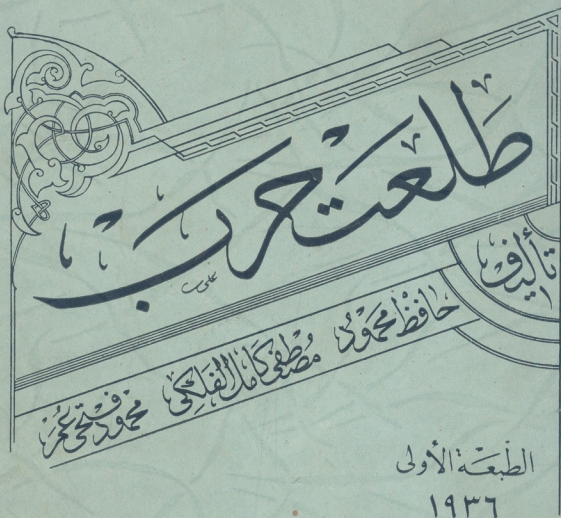 طلعت حرب
تأليف
حافظ محمود مصطفى كامل الفلكى محمود فتحى عمر
الطبعة الأولى
١٩٣٦